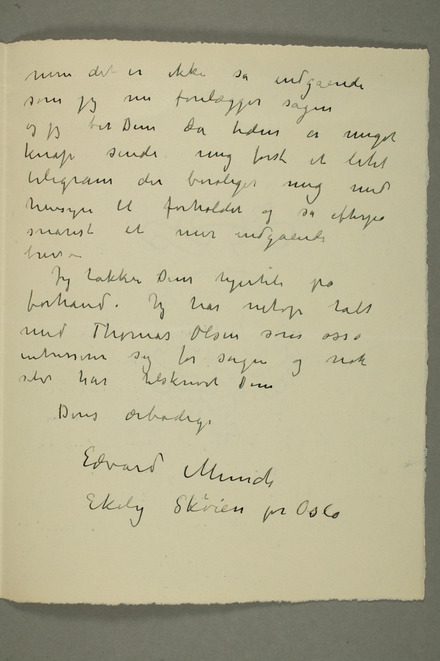 men det er ikke så indgående
som jeg nu forelægger sagen
og jeg ber Dem da tiden er meget
knap sende mig først et litet
telegram der beroliger mig med
hensyn til forholdet og så efterpå
snarest et mer indgående
brev –
Jeg takker Dem hjertelig på
forhånd. Jeg har netop talt
med Thomas Olsen som også
interesserer sig for sagen og nok
selv har tilskrevet Dem
Deres ærbødige
Edvard Munch
Ekely Skøien pr Oslo